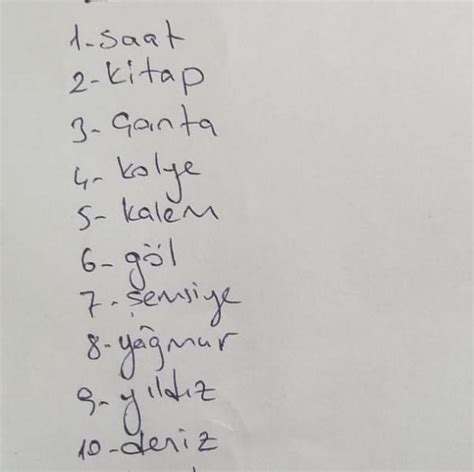 1-saat
2-kitap
3-Çanta
4-kolye
5-kalem
6-göl
7-şemsiye
8-yağmur
9-yıldız
10-deniz